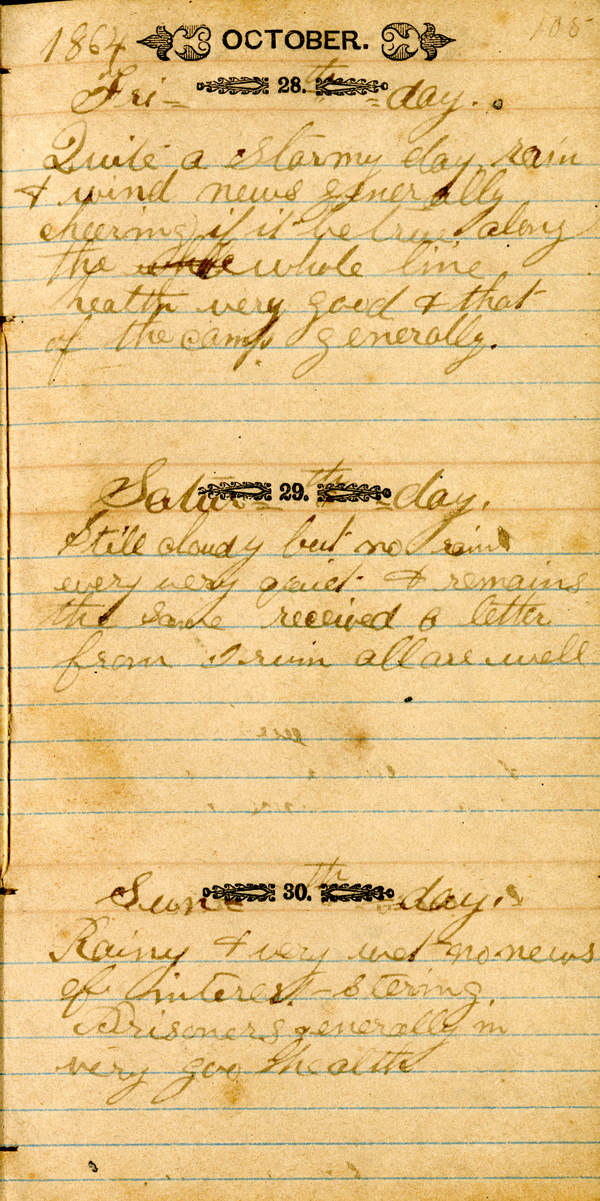 1864 OCTOBER. 105
Fri- 28.th -day.
Quite a stormy day rain
& wind news generally
cheering if it be true along
the whole line
health very good & that
of the camp generally.
Satur- 29.th -day.
Still cloudy but no rain
every very quiet & remains
the same received a letter
from Irwin all are well
Sun- 30.th day.
Rainy & very wet no news
of interest stering.
Prisoners generally in
very goo health